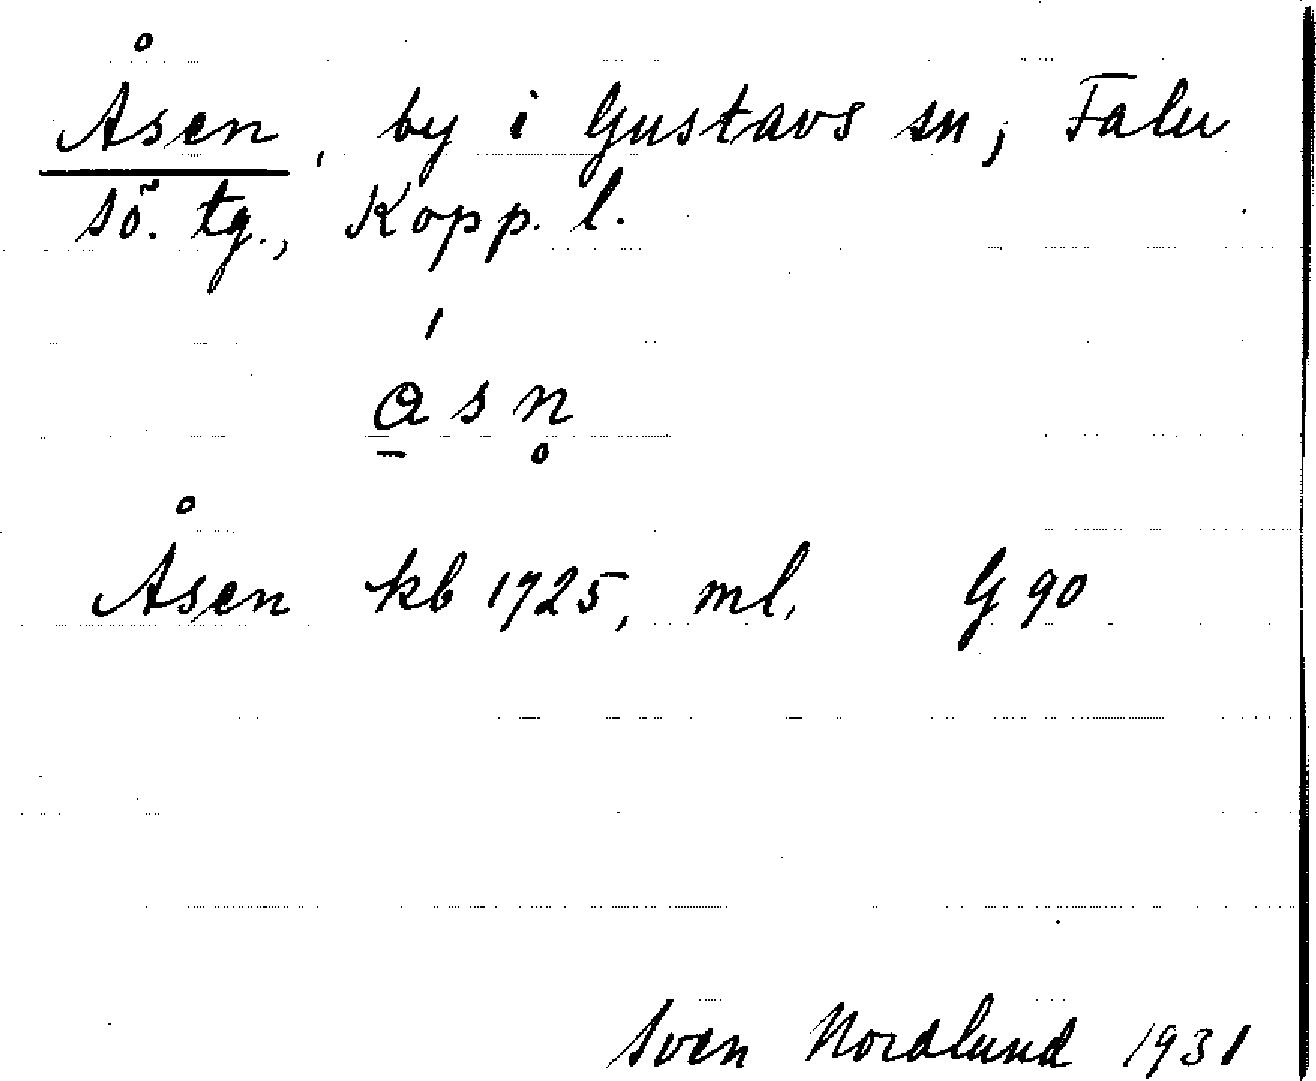 Åsen, by i Gustavs sn, Falu
sö. tg., Kopp. l.
Åsen kb 1725, ml. G 90
Sven Nordlund 1931